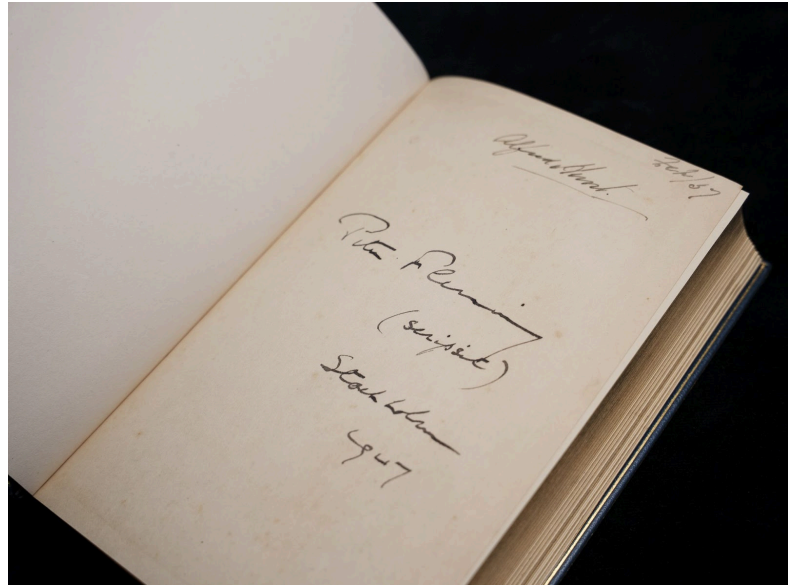 Alfred Hunt.
Feb/67
Peter Fleming
(scripsit)
Stockholm
1947